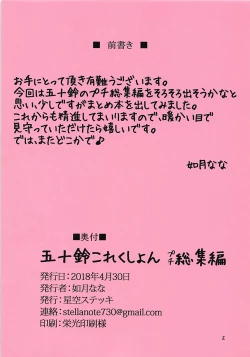 ■ 前書き ■
お手にとって頂き有難うございます。
今回は五十鈴のプチ総集編をそろそろ出そうかなと
思い、少しですがまとめ本を出してみました。
これからも精進してまい川ますので、暖かい目で
見守っていただけたら嬉しいです。
では、またどこかで♪
如月なな
■奥付■
五十鈴これくしょん プチ総集編
発行日:2018年4月30日
発行者:如月なな
発行:星空ステッキ
連絡:stellanote730@gmail.com
印刷:栄光印刷様
2